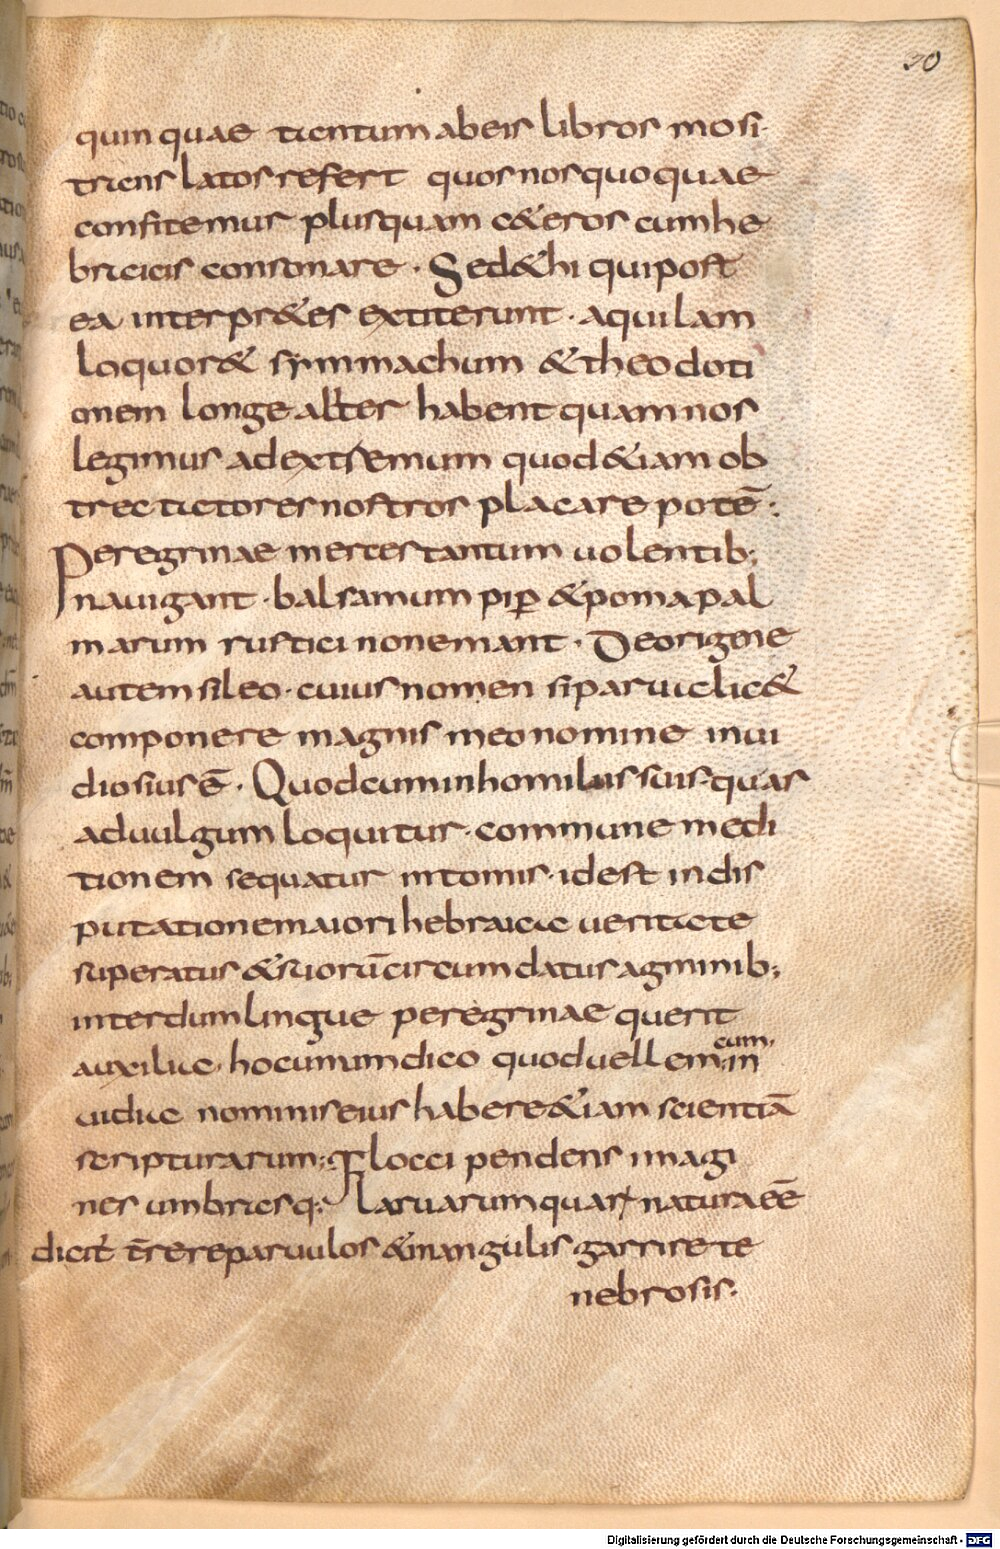 20
quin quae tantum ab eis libros mosi
triens latos refert quos nos quoquae
confitemur plusquam c&eros cum he
braicis consonare · Sed & hi qui post
ea interpr&es extiterunt · aquilam
loquor & symmachum & theodoti
onem longe alit̄er habent quam nos
legimus ad extremum quod &iam ob
trectatores nostros placare potē:
Peregrinae merces tantum uolentib;
nauigant · balsamum pip̄ & poma pal
marum rustici non emant · De origene
autem sileo · cuius nomen si parua lic&
componere magnis meo nomine inui
diosius ē · Quod cum in homiliis suis quas
ad uulgum loquitur · commune medi
tionem sequatur in tomis · id est in dis
putatione maiori hebraica ueritate
superatus & suorū circumdatus agminib;
interdum lingue peregrinae querit
auxilia · hoc unum dico quod uellem cum in
uidia nominis eius habere &iam scientiā
scripturarum; Flocci pendens imagi
nes umbrasq; laruarum quarum natura eē
dicit̄ t̄rere paruulos & in angulis garrire te
nebrosis:
Digitalisierung gefördert durch die Deutsche Forschungsgemeinschaft - DFG